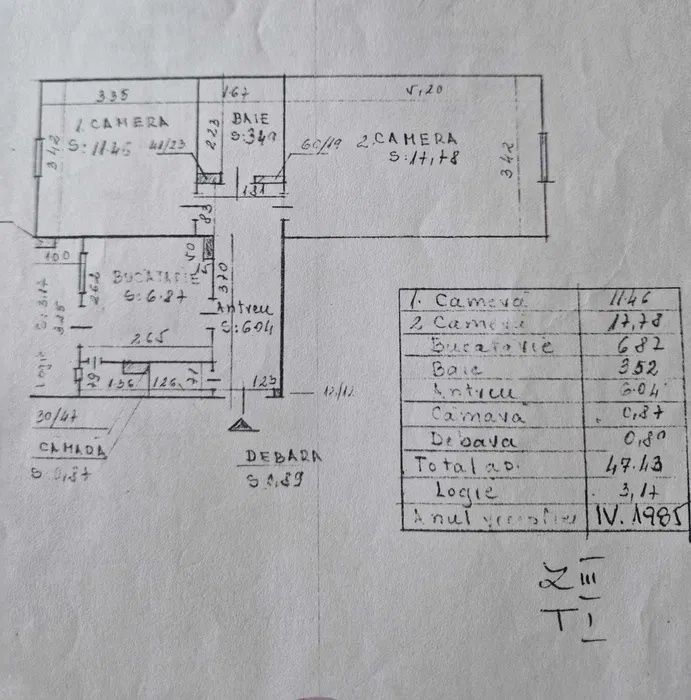 335
167
5,20
1. CAMERA
S: 11.45
BAIE
S:3.49
2. CAMERA
S: 17,78
342
223
41/23
60/19
342
131
83
100
BUCATARIE
S: 6.87
262
50
370
Antreu
S: 604
S: 3.17
265
79
136
126
71
123
12/12
30/47
CAMARA
S: 0,87
DEBARA
S 0,89
1. Camera 11.46
2 Camera 17,78
Bucatarie 6 82
Baie 3.52
Antreu 6.04
Camara 0,87
Debara
Total ap. 47.43
Logie 3,17
Anul IV. 1985
Z III
T I